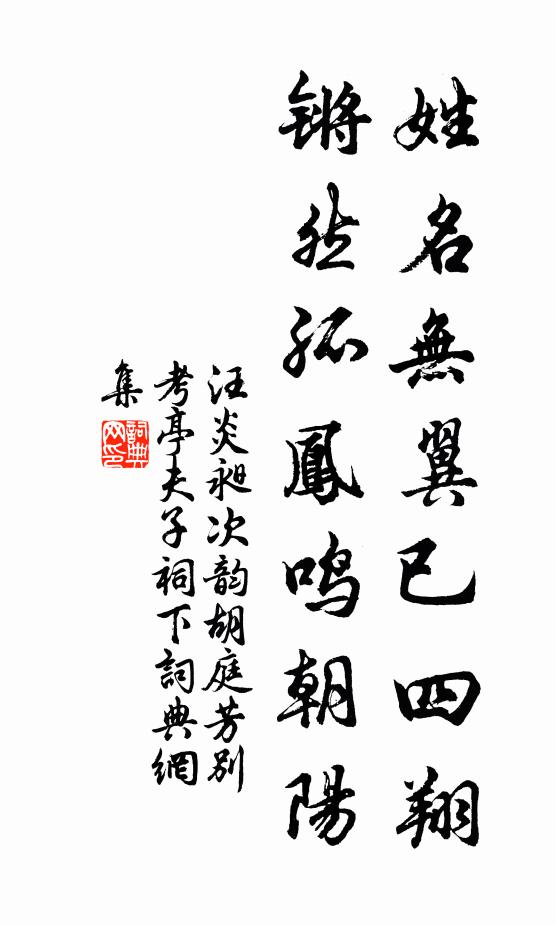 姓名無翼已四翔
锵然孤鳳鳴朝陽
汪炎昶次韵胡庭芳别
考亭夫子祠下詞典網
集
詞典网印